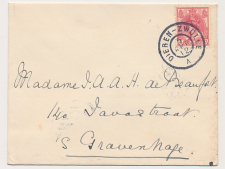 DIEREN-ZWOLLE
A
Madame J. A. A. H. de Beaufort
14c Javastraat
's Gravenhage